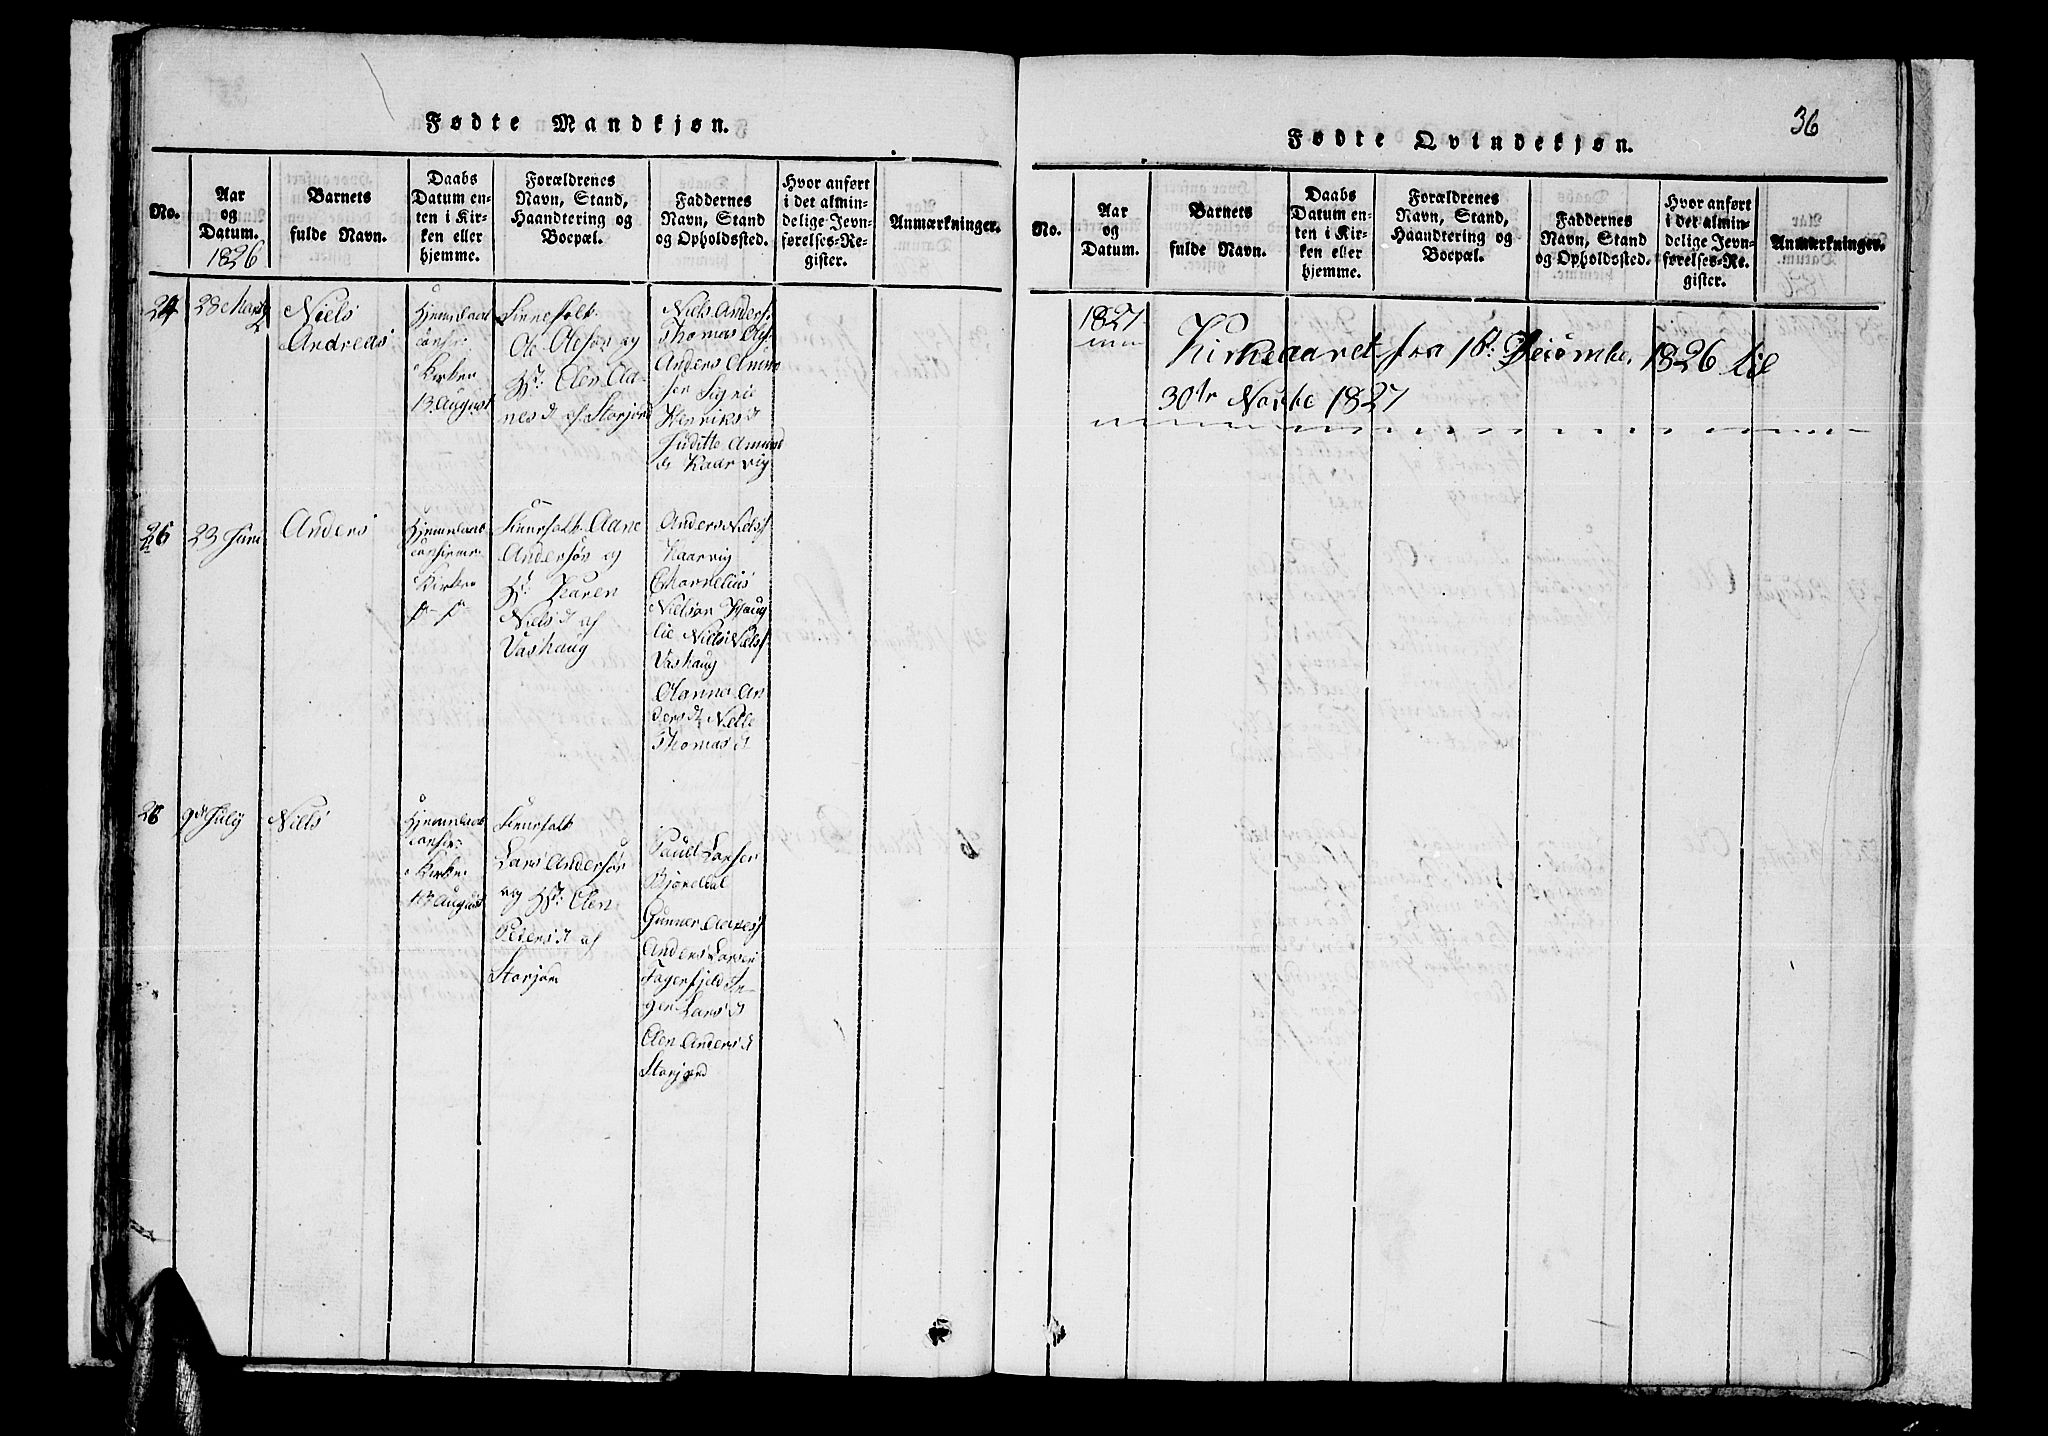 Fødte Mandkjøn.
No.
Aar
og
Datum.
1826
Barnets
fulde Navn.
Daabs
Datum en-
ten i Kir-
ken eller
hjemme.
Forældrenes
Navn, Stand,
Haandtering og
Boepæl.
Faddernes
Navn, Stand
og Opholdssted.
Hvor anført
i det almin-
delige Jevn-
førelses-Re-
gister.
Anmærkninger.
24
28 Marty
Niels
Andreas
Hjemmedaabt
confir:
i Kirken
13 August
Finnefolk
Ole Olesøn og
Hst: Elen Aa-
nes d af Storjord
Niels Anders:
Thomas
Anders Amun
Signe
Henriks d
Juditte Amund
d Kaarvig
23 Juni
Anders
Hjemmedaabt
confirmer:
Kirken
Finnefolk Aane
Andersøn og
Hst: Karen
Niels d af
Vashaug
Anders Niels:
Kaarvig
Cornelius
Nielsøn Houg
lie Niels Niels:
Vashaug
Hanna An
ders d Nille
Thomas d
9de July
Niels
Hjemmedaabt
confir:
i Kirken
13 August
Finnefolk
Lars Andersøn
og Hst: Elen
Peders d af
Storjord
Paul Larsen
Bjøndal
Gunner Aanes:
Anders Larsen
Fagerfjeld In-
ger Lars d
Elen Anders d
Storjord
36
Fødte Qvindekjøn.
No.
Aar
og
Datum.
Barnets
fulde Navn.
Daabs
Datum en-
ten i Kir-
ken eller
hjemme.
Forældrenes
Navn, Stand,
Haandtering og
Boepæl.
Faddernes
Navn, Stand
og Opholdssted.
Hvor anført
i det almin-
delige Jevn-
førelses-Re-
gister.
Anmærkninger.
1827
Kirkeaaret fra 1st: Decembe. 1826 til
30te Novbe 1827